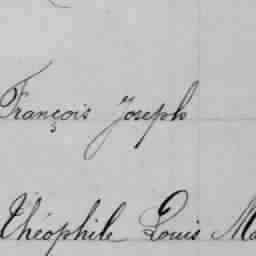 François Joseph
Théophile Louis Ma